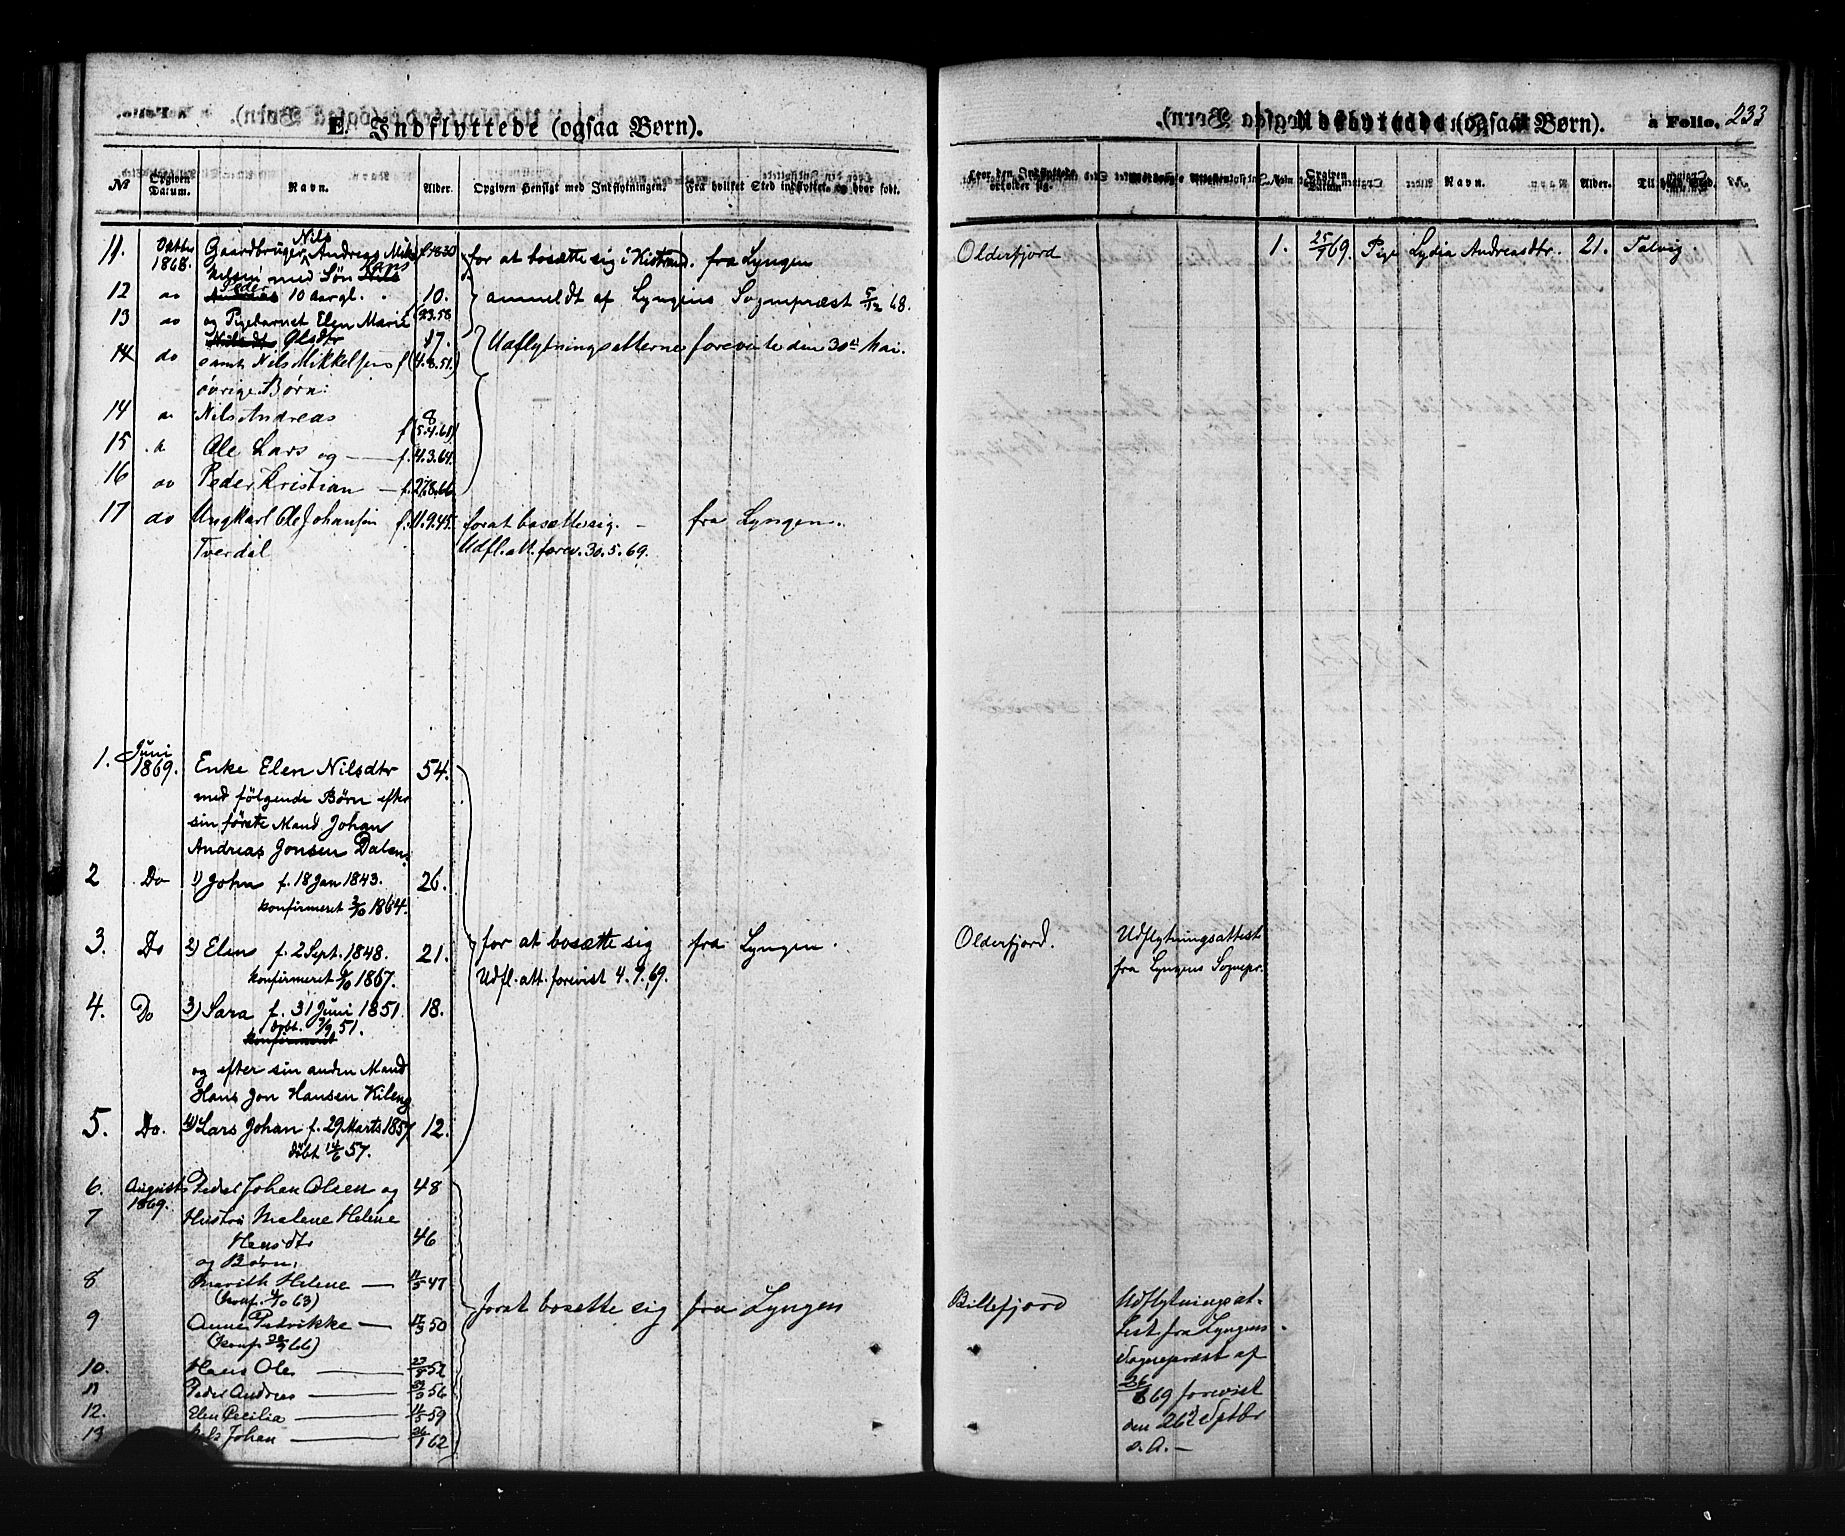 E. Indflyttede (ogsaa Børn).
№ Opgiven Datum. Navn. Alder. Opgiven Hensigt med Indflytningen. Fra hvilket Sted indflyttet, og hvor født.
11. Oktbr 1868. Gaardbruger Nils Andreas Mik f. 1830 for at bosætte sig i Kistrand. fra Lyngen
Nilsen med Søn Hans
12 Peder 10 aargl. 10. anmeldt af Lyngens Sognepræst 5/12 68.
13 og Pigebarnet Elen Marie
Nilsdtr Olsdtr 17. Udflytningsatterne foreviste den 30te Mai.
14 do samt Nils Mikkelsens f (4.8.51)
øvrige Børn:
14 Nils Andreas 8
15 Ole Lars og — f. 4.3.64.
16 Peder Kristian — f. 27.8.66.
17 do Ungkarl Ole Johansen f. 11.9.45. forat bosætte sig. — fra Lyngen.
Tverdal Udfl. att. forev. 30.5.69.
1. Juni 1869. Enke Elen Nilsdtr 54.
med følgende Børn efter
sin første Mand Johan
Andreas Jonsen Dalen:
2 Do 1) John f. 18 Jan 1843. 26.
konfirmeret 1864.
3. Do 2) Elen f. 2 Sept. 1848. 21. for at bosætte sig fra Lyngen.
konfirmeret 1867. Udfl. att. forevist 4.9.69.
4. Do 3) Sara f. 31 Juni 1851. 18.
døbt 7/9 51.
konfirmeret
og efter sin anden Mand
Hans Jon Hansen Kileng
5. Do. 4) Lars Johan f. 29 Marts 1857 12.
døbt 14/6 57.
6. August 1869. Peder Johan Olsen og 48
7 Hustru Malene Helene
Hansdtr 46
og Børn:
8 Marith Helene — 11/5 47
(konf. 4/10 63) forat bosætte sig fra Lyngen
9 Anne Pedrikke — 50
(konf. 66)
10. Hans Ole — 52
11 Peder Andreas — 56
12. Elen Cecilia — 11/5 59
13 Nils Johan — 26/1 62
Udflyttede (ogsaa Børn). a Folio, 233
Navn. Alder.
Olderfjord 1. 25/7 69. Pige Lydia Andreasdtr. 21. Talvig
Olderfjord. Udflytningsattest
fra Lyngens Sognepr.
Billefjord Udflytningsat-
test fra Lyngens
Sognepræst af
26/8 69 forevist
den 26d Septbr
s. A. —